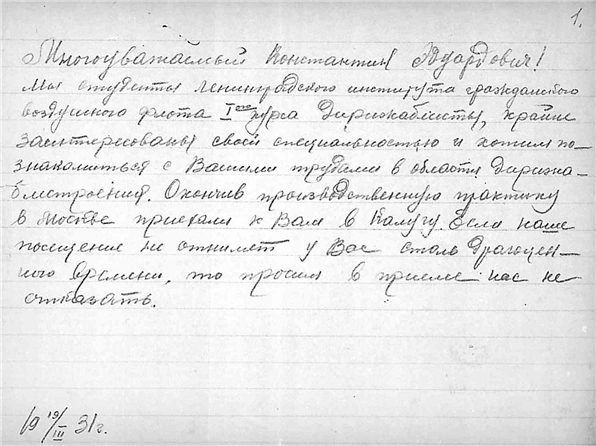 1.
Многоуважаемый Константин Эдуардович!
Мы студенты Ленинградского института гражданского
воздушного флота I курса Дирижаблисты, крайне
заинтересованы своей специальностью и хотим по-
знакомиться с Вашими трудами в области Дирижа-
блестроения. Окончив производственную практику
в Москве приехали к Вам в Калугу. Если наше
посещение не отнимет у Вас столь Драгоцен-
ного Времени, то просим в приеме нас не
отказать.
19 19/III 31г.